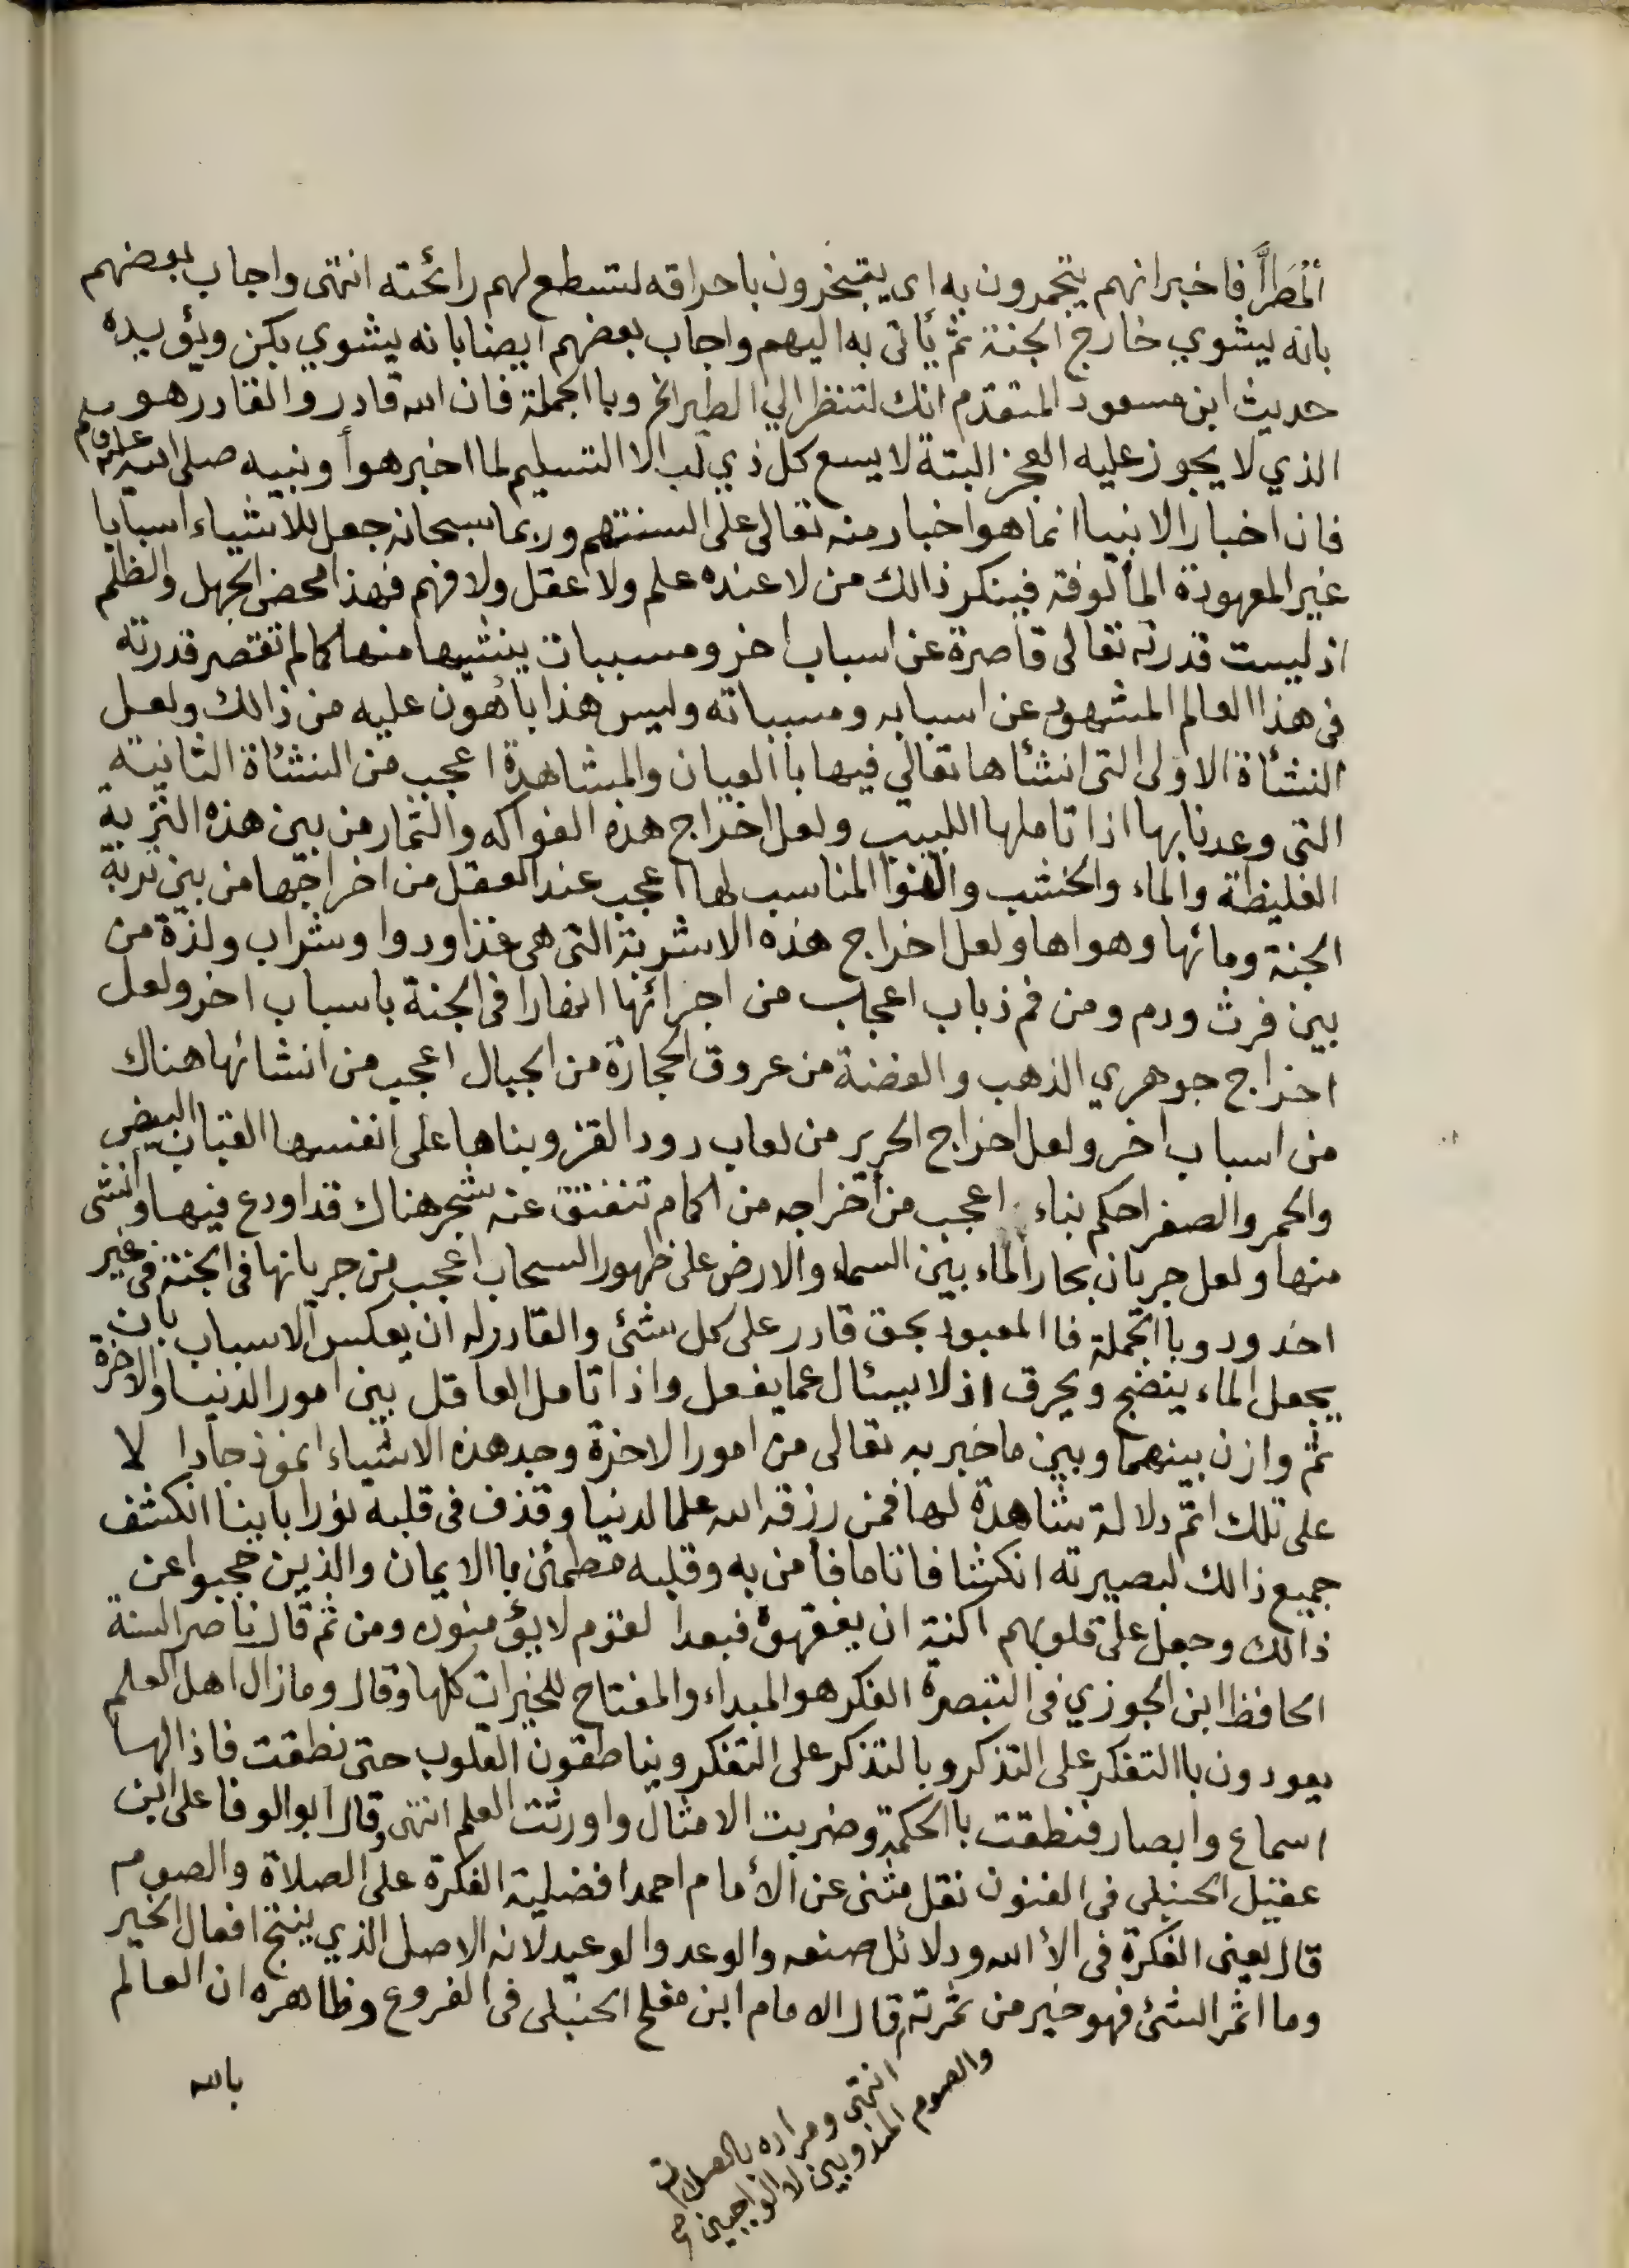 المُطَرّاَ فاخبر انهم يتجمرون به اى يتبخرون باحراقه لتسطع لهم رائحته انتهى واجاب بعضهم
بانه يشوي خارج الجنة ثم يأتى به اليهم واجاب بعضهم ايضا بانه يشوي بكن ويؤيده
حديث ابن مسعود المتقدم انك لتنظر الي الطير الخ وباالجملة فان الله قادر والقادر هو
الذي لا يجوز عليه العجز البتة لا يسع كل ذي لب الا التسليم لما اخبر هو أو نبيه صلى الله عليه وسلم
فان اخبار الانبيا انما هو اخبار منه تعالى على السنتهم وربما سبحانه جعل للاشياء اسبابا
غير المعهودة المألوفة فينكر ذالك من لا عنده علم ولا عقل ولا فهم فهذا محض الجهل والظلم
اذ ليست قدرته تعالى قاصرة عن اسباب اخر ومسببات ينشيها منها كما لم تقتصر قدرته
فى هذا العالم المشهود عن اسبابه ومسبباته وليس هذا بأهون عليه من ذالك ولعل
النشئاة الاولى التى انشئها تعالي فيها باالعيان والمشاهدة اعجب من النشئاة الثانية
التى وعدنا بها اذا تاملها اللبيب ولعل اخراج هذه الفواكه والثمار من بين هذه التربة
الغليظة والماء والخشب والهوا المناسب لها اعجب عند العقل من اخراجها من بين تربة
الجنة ومائها وهواها ولعل اخراج هذه الاشربة التى هى غذا ودوا وشراب ولذة من
بين فرث ودم ومن فم ذباب اعجاب من اجرائها انهارا فى الجنة باسباب اخر ولعل
اخراج جوهري الذهب والفضة من عروق الحجارة من الجبال اعجب من انشائها هناك
من اسباب اخر ولعل اخراج الحرير من لعاب دود القز وبناها على انفسها القباب البيض
والحمر والصفر احكم بناء اعجب من أخراجه من اكمام تنفتق عنه شجر هناك قد اودع فيها وانشى
منها ولعل جريان بحار الماء بين السماء والارض على ظهور السحاب اعجب من جريانها فى الجنة فى غير
اخدود وباالجملة فاالمعبود بحق قادر على كل شئى والقادر له ان يعكس الاسباب بان
يجعل الماء ينضج ويحرق اذ لا يسئال عما يفعل واذا تامل العاقل بين امور الدنيا والاخرة
ثم وازن بينهما وبين ما خبر به تعالى من امور الاخرة وجد هذه الاشياء انموذجا دا لا
على تلك اتم دلالة شاهدة لها فمن رزقه الله علما لدنيا وقذف فى قلبه نورا باينا انكشف
جميع ذالك لبصيرته انكشافا تاما فأمن به وقلبه مطمئن باالايمان والذين حجبوا عن
ذالك وجعل على قلوبهم اكنة ان يفقهوه فبعدا لقوم لايؤمنون ومن ثم قال ناصر السنة
الحافظ ابن الجوزي فى التبصرة الفكر هو المبداء والمفتاح للخيرات كلها وقال وما زال اهل العلم
يعودون باالتفكر على التذكر وبالتذكر على التفكر ويناطقون القلوب حتى نطقت فاذا لها
اسماع وابصار فنطقت باالحكمة وضربت الامثال واورثت العلم انتهى وقال ابو الوفا على ابن
عقيل الحنبلى فى الفنون نقل مثنى عن الأمام احمد افضلية الفكرة على الصلاة والصوم
قال يعنى الفكرة فى الأ الله ودلائل صنعه والوعد والوعيد لانه الاصل الذي ينتج افعال الخير
وما اثمر الشئى فهو خير من ثمرته قال الامام ابن مفلح الحنبلى فى الفروع وظاهره ان العالم
بالله
انتهى ومراده بالصلاة
والصوم المندوبين لا الواجبين